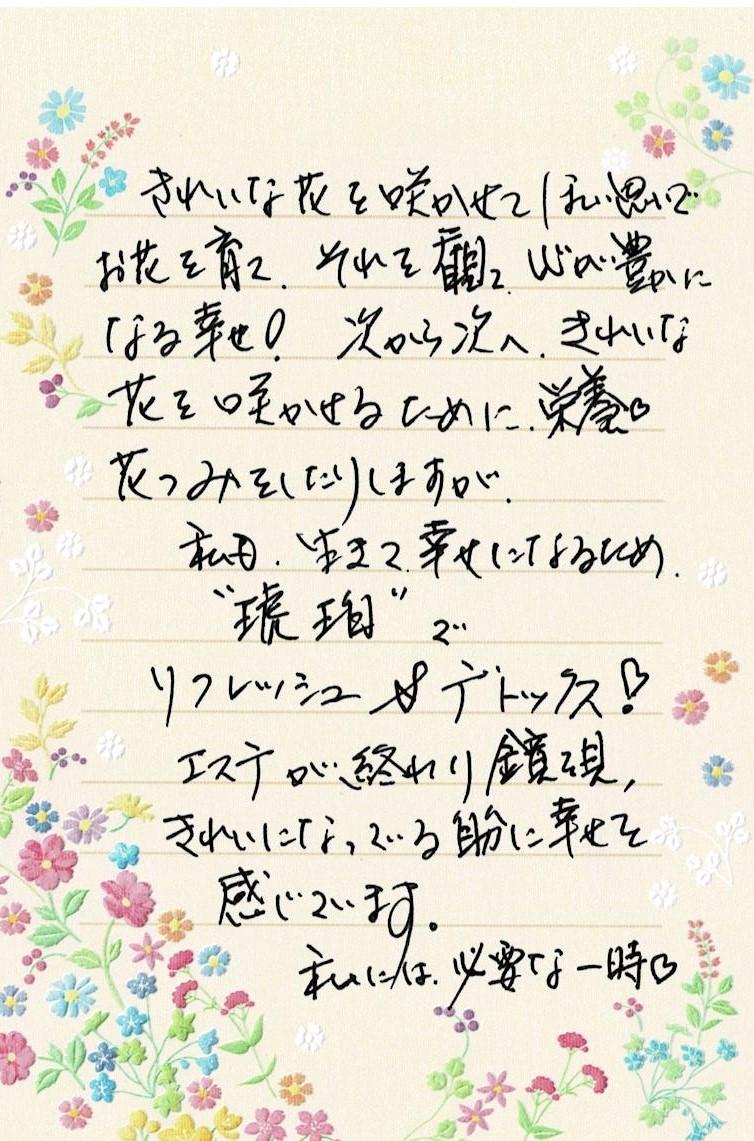 きれいな花を咲かせてほしい思いで
お花を育て、それを観て、心が豊かに
なる幸せ! 次から次へ、きれいな
花を咲かせるために、栄養♡
花つみをしたりしますが、
私も、生きて、幸せになるため、
“琥珀”で
リフレッシュ&デトックス!
エステが、終わり鏡を見,
きれいになっている自分に幸せを
感じています。
私には、必要な一時♡